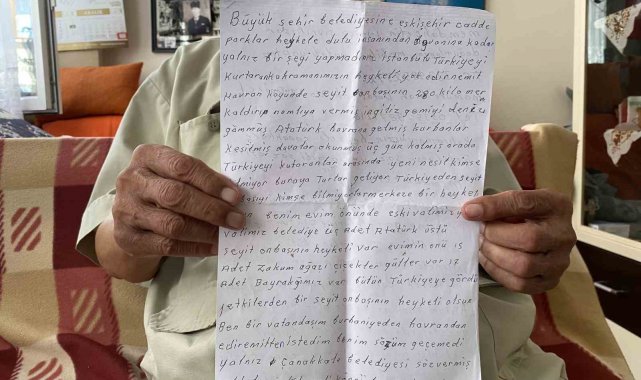 Büyük şehir belediyesine eskişehir cadde
parklar heykele dulu insanından hayvanına kadar
yalnız bir şeyi yapmadınız istanbulu Türkiyeyi
kurtaran kahramanımızın heykeli yok edirnemit
Havran köyünde seyit onbaşının 280 kilo mer
kaldırıp namluya vermiş ingiliz gemiyi deniz
gömmüş Atatürk havrana gelmiş kurbanlar
kesilmiş davalar okunmuş üç gün kalmış orada
Türkiyeyi kutaranlar arasında yeni nesil kimse
bilmiyor buraya Turlar geliyor Türkiyeden seyit
kimse bilmiyorlar merkeze bir heykel
benim evim önünde eski valimiz
valimiz belediye üç Adet Atatürk üstü
seyit onbaşının heykeli var evimin önü
Adet Zakum ağacı çicekler güller var
Adet Bayrağımız var bütün Türkiyeye
yetkilerden bir seyit onbaşının heykeli olsun
Ben bir vatandaşım burhaniyeden havrandan
ediremitten istedim benim sözüm geçemedi
yalnız Çanakkale belediyesi söz vermiş